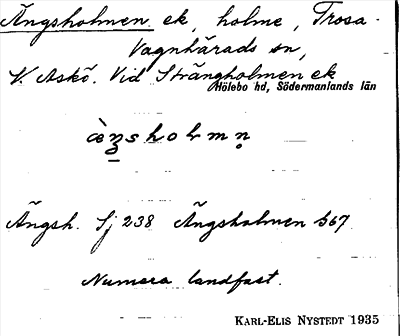 Ängsholmen ek, holme, Trosa-
Vagnhärads sn,
V. Askö. Vid Strängholmen ek
Hölebo hd, Södermanlands län
Ängsh. Sj 238 Ängsholmen 567
Numera landfast.
KARL-ELIS NYSTEDT 1935